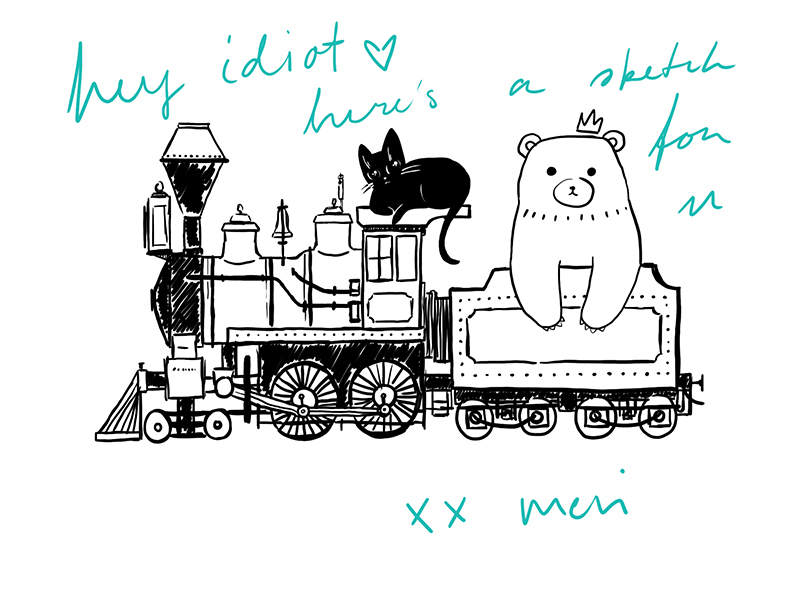 hey idiot ♡
here's a sketch
for u
xx meri